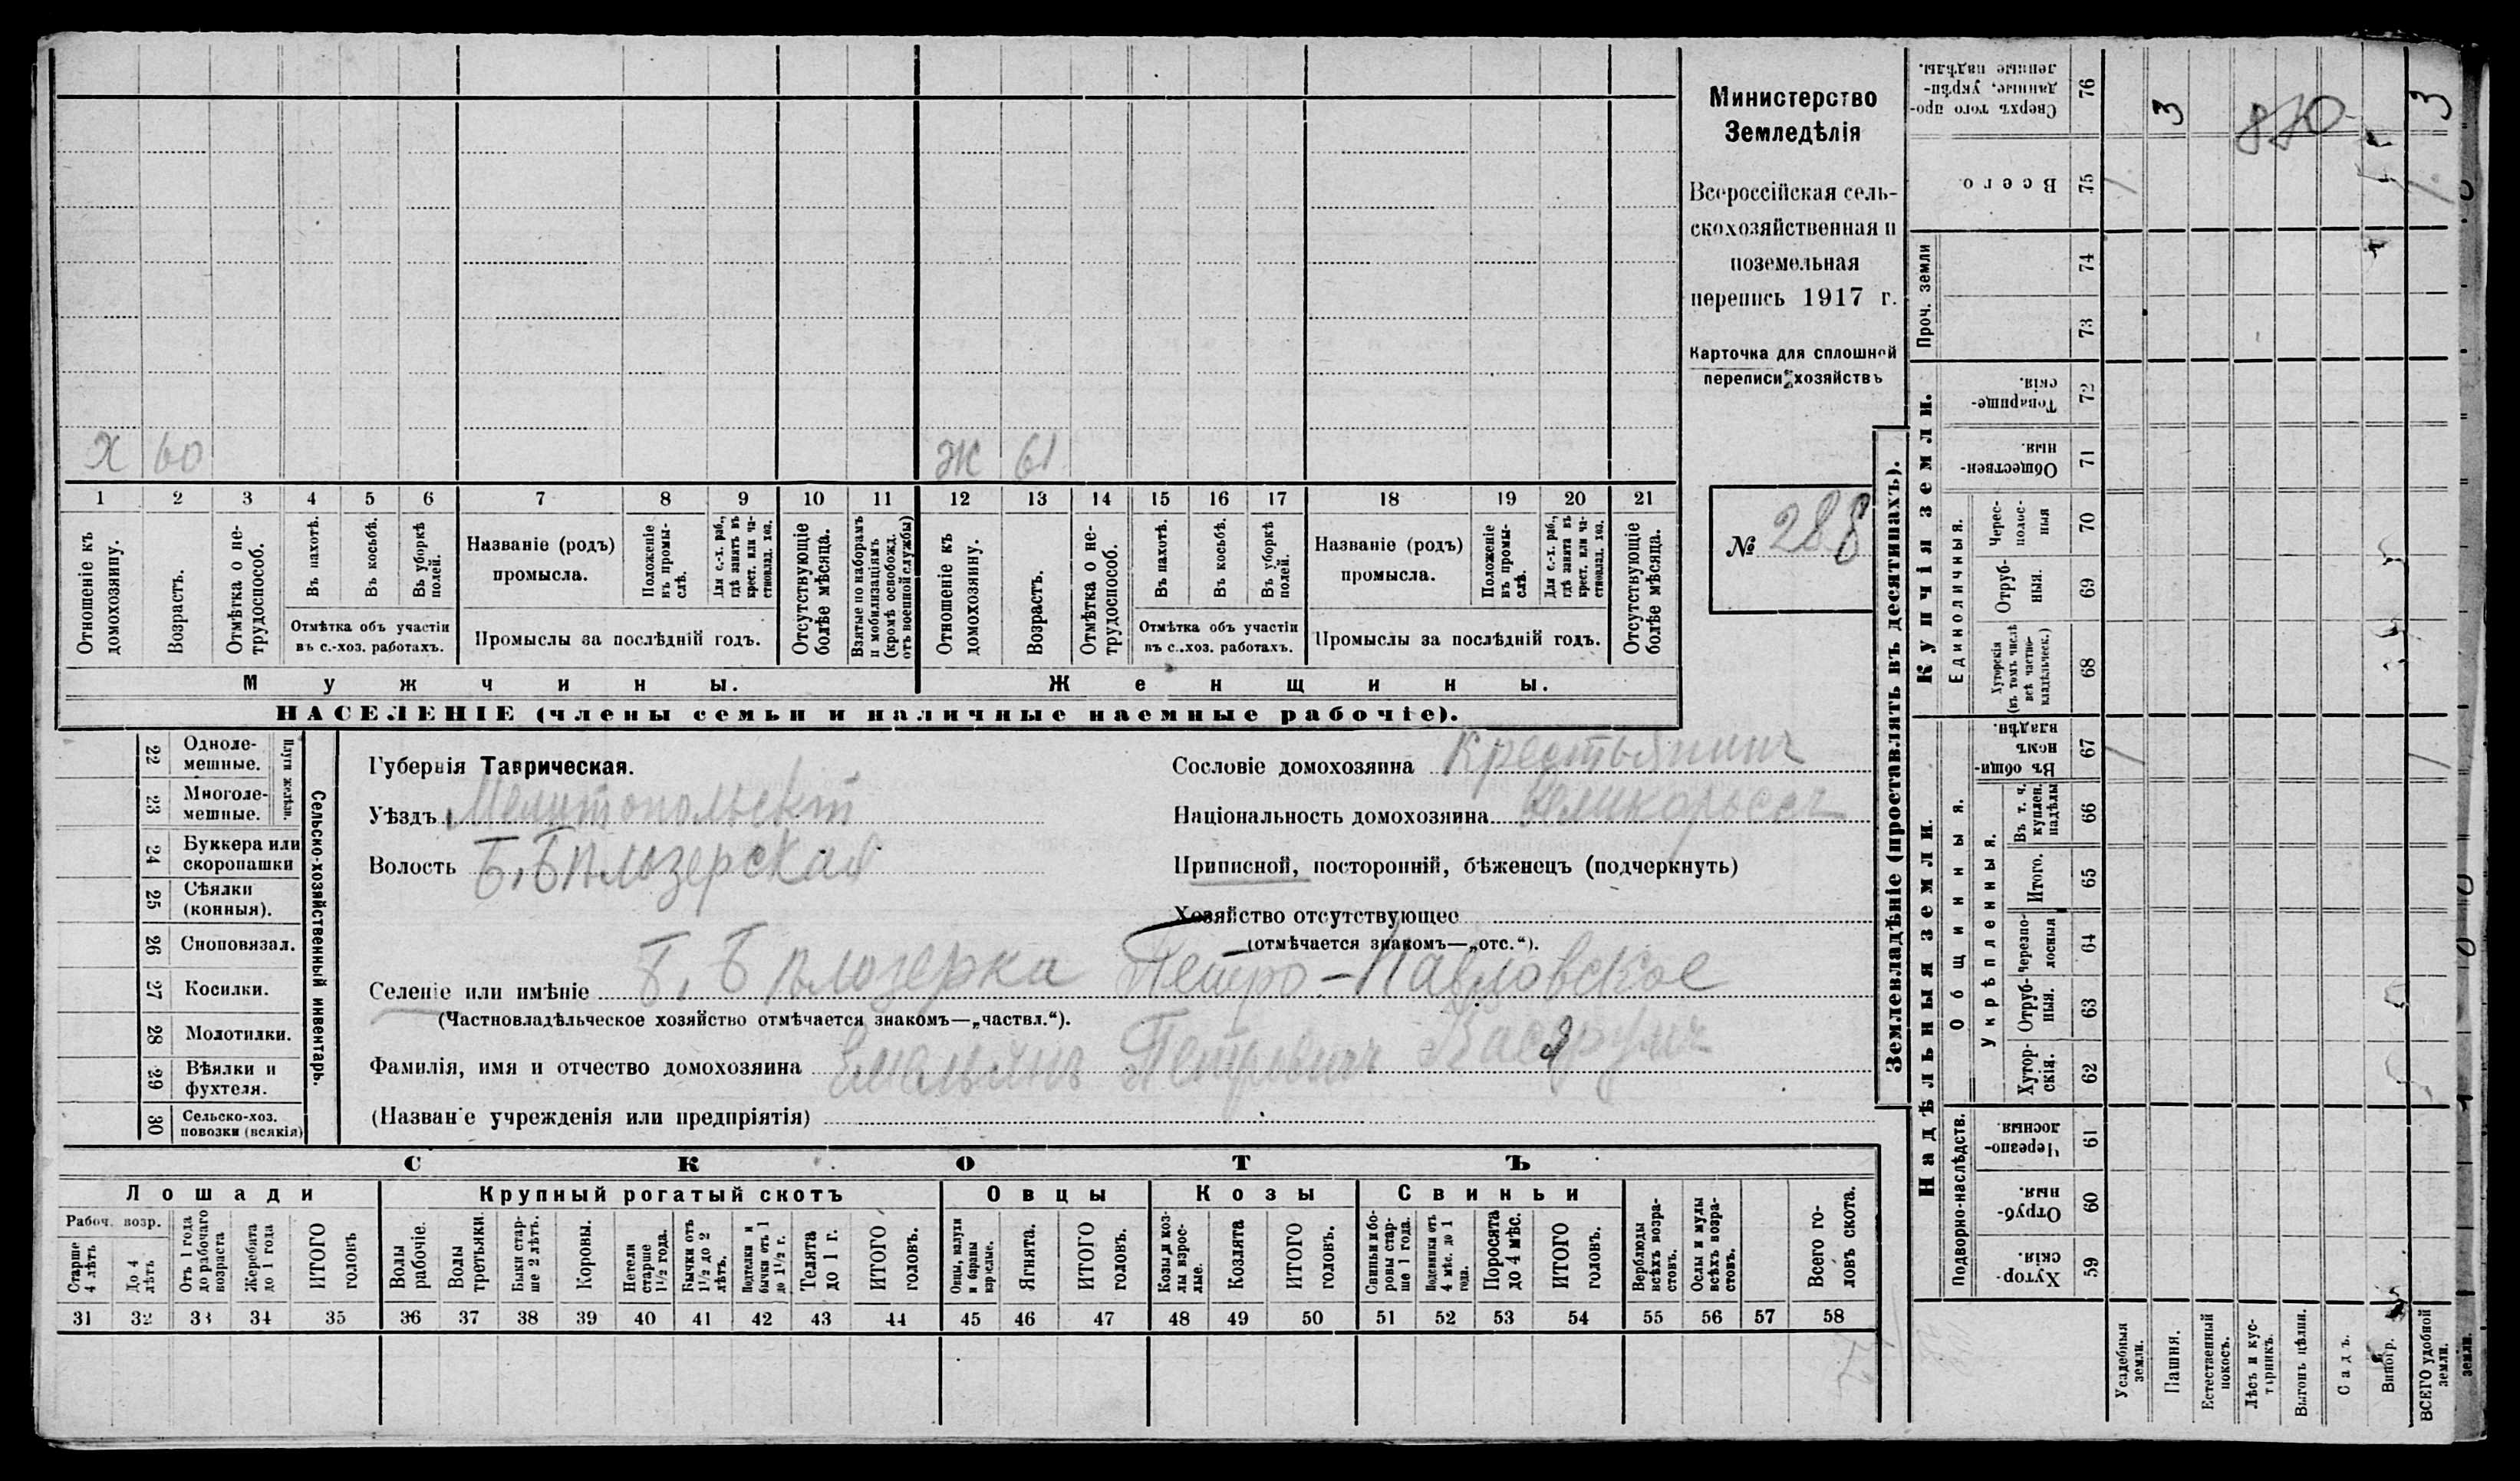 Министерство
Земледѣлія
Всероссійская сель-
скохозяйственная и
поземельная
перепись 1917 г.
Карточка для сплошной
переписи хозяйствъ
№ 288
Х 60
Ж 61
1 2 3 4 5 6 7 8 9 10 11 12 13 14 15 16 17 18 19 20 21
Отношеніе къ домохозяину.
Возрастъ.
Отмѣтка о не-трудоспособ.
Въ пахотѣ.
Въ косьбѣ.
Въ уборкѣ полей.
Отмѣтка объ участіи
въ с.-хоз. работахъ.
Названіе (родъ)
промысла.
Положеніе въ промы-слѣ.
Для с.-х. раб., гдѣ занятъ въ крест. или ча-стновлад. хоз.
Промыслы за послѣдній годъ.
Отсутствующіе болѣе мѣсяца.
Взятые по наборамъ и мобилизаціямъ (кромѣ освобожд. отъ военной службы)
Отношеніе къ домохозяину.
Возрастъ.
Отмѣтка о не-трудоспособ.
Въ пахотѣ.
Въ косьбѣ.
Въ уборкѣ полей.
Отмѣтка объ участіи
въ с..хоз. работахъ.
Названіе (родъ)
промысла.
Положеніе въ промы-слѣ.
Для с.-х. раб., гдѣ занята въ крест. или ча-стновлад. хоз.
Промыслы за послѣдній годъ.
Отсутствующіе болѣе мѣсяца.
Мужчины.
Женщины.
НАСЕЛЕНІЕ (члены семьи и наличные наемные рабочіе).
Сельско-хозяйственный инвентарь.
Плуги желѣзн.
22 Одноле-мешные.
23 Многоле-мешные.
24 Буккера или скоропашки
25 Сѣялки (конныя).
26 Сноповязал.
27 Косилки.
28 Молотилки.
29 Вѣялки и фухтеля.
30 Сельско-хоз. повозки (всякія)
Губернія Таврическая.
Уѣздъ Мелитопольскій
Волость Б. Бѣлозерская
Сословіе домохозяина Крестьянинъ
Національность домохозяина Великороссъ
Приписной, посторонній, бѣженецъ (подчеркнуть)
Хозяйство отсутствующее
(отмѣчается знакомъ—„отс.“).
Селеніе или имѣніе Б. Бѣлозерка Петро-Павловское
(Частновладѣльческое хозяйство отмѣчается знакомъ—„частвл.“).
Фамилія, имя и отчество домохозяина Емельянъ Петровичъ
(Названіе учрежденія или предпріятія)
СКОТЪ
Лошади
Крупный рогатый скотъ
Овцы
Козы
Свиньи
Рабоч. возр.
Старше 4 лѣтъ
До 4 лѣтъ
Отъ 1 года до рабочаго возраста
Жеребята до 1 года
ИТОГО головъ
Волы рабочіе.
Волы третьяки.
Быки стар-ше 2 лѣтъ.
Коровы.
Нетели старше 1½ года.
Бычки отъ 1½ до 2 лѣтъ.
Подтелки и бычки отъ 1 до 1½ г.
Телята до 1 г.
ИТОГО головъ.
Овцы, валухи и бараны взрослые.
Ягнята.
ИТОГО головъ.
Козы и коз-лы взрос-лые.
Козлята
ИТОГО головъ.
Свиньи и бо-ровы стар-ше 1 года.
Подсвинки отъ 4 мѣс. до 1 года.
Поросята до 4 мѣс.
ИТОГО головъ.
Верблюды всѣхъ возра-стовъ.
Ослы и мулы всѣхъ возра-стовъ.
Всего го-ловъ скота.
31 32 33 34 35 36 37 38 39 40 41 42 43 44 45 46 47 48 49 50 51 52 53 54 55 56 57 58
Землевладѣніе (проставлять въ десятинахъ).
Надѣльныя земли.
Купчія земли.
Проч. земли
Подворно-наслѣдств.
Общинныя.
Укрѣпленныя.
Единоличныя.
Сверхъ того про-данные, укрѣп-ленные надѣлы. 76
Всего 75
74
73
Товарище-скія. 72
Обществен-ныя. 71
Черес-полос-ныя 70
Отруб-ныя. 69
Хуторскія (въ томъ числѣ всѣ частно-владѣльческ.) 68
Въ общин-номъ владѣн. 67
Въ т. ч. куплен. надѣлы 66
Итого. 65
Черезпо-лосныя 64
Отруб-ныя. 63
Хутор-скія. 62
Черезпо-лосныя. 61
Отруб-ныя. 60
Хутор-скія. 59
Усадебныя земли.
Пашня.
Естественный покосъ.
Лѣсъ и кус-тарникъ.
Выгонъ цѣлин.
Садъ.
Виногр.
ВСЕГО удобной земли.
земли.
3
3